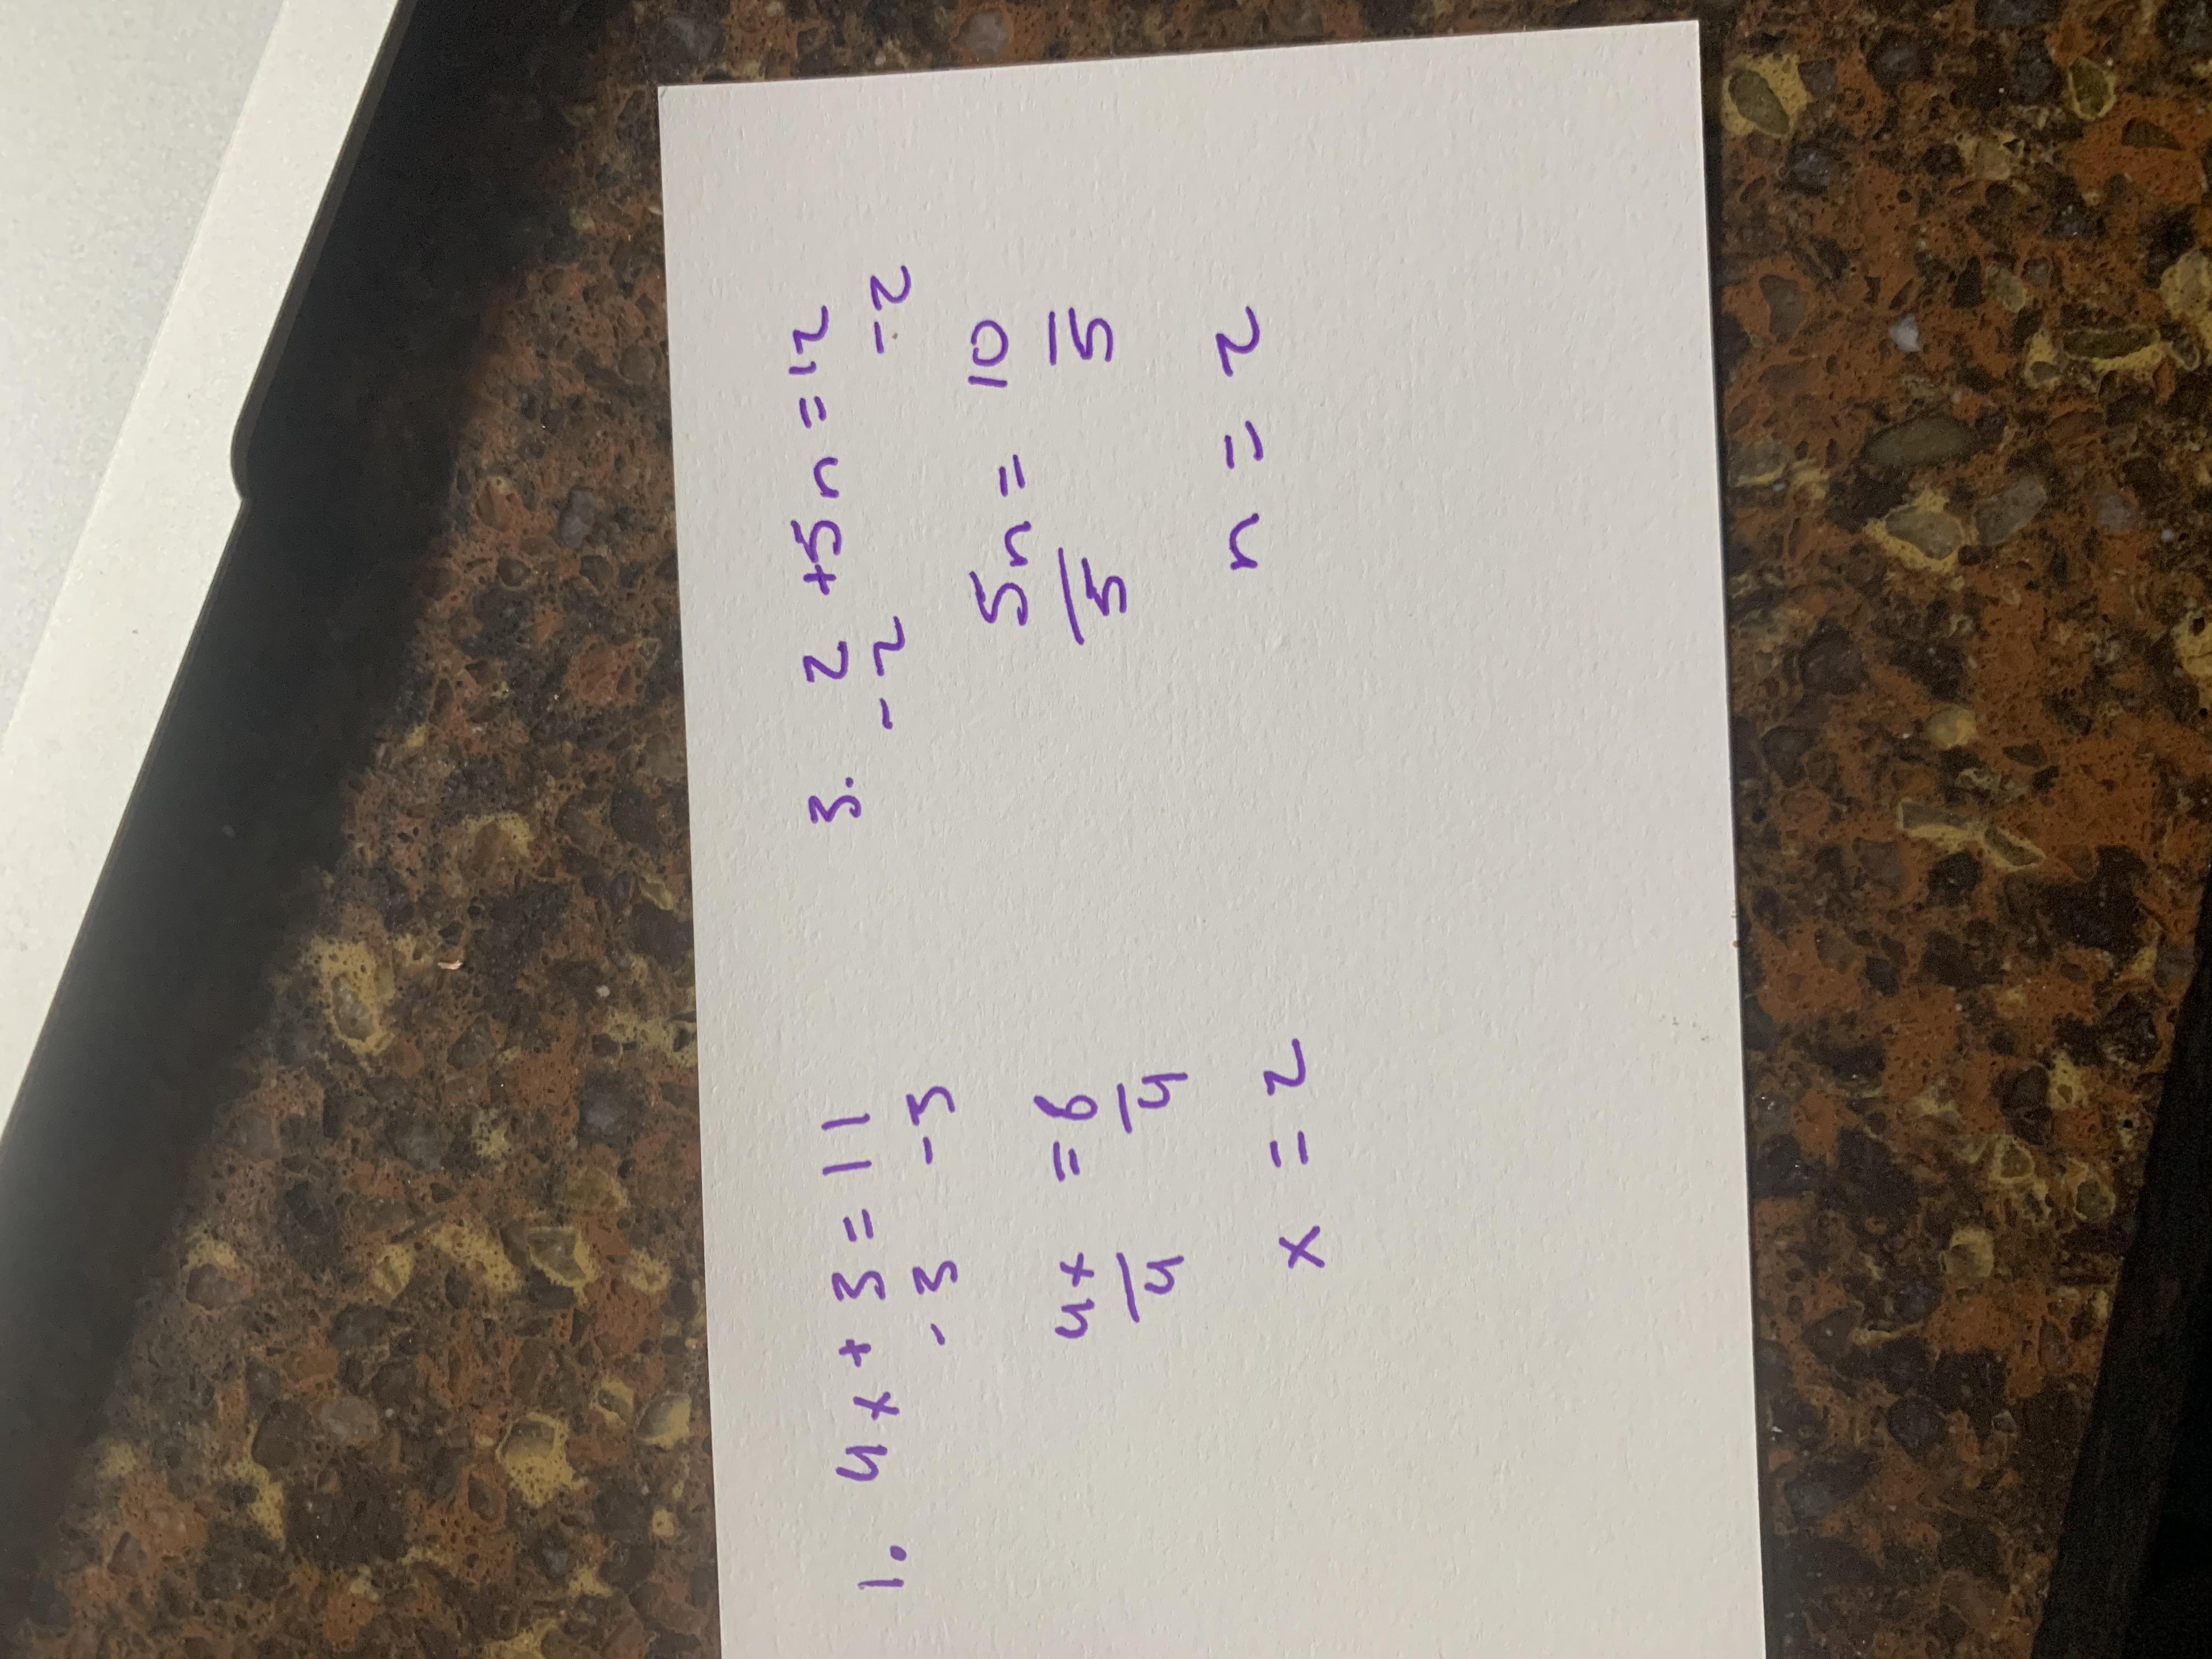 1. 4x + 3 = 11
- 3 - 3
4x = 8
/4 /4
x = 2
3. 2 + 5n = 12
- 2 - 2
5n = 10
/5 /5
n = 2